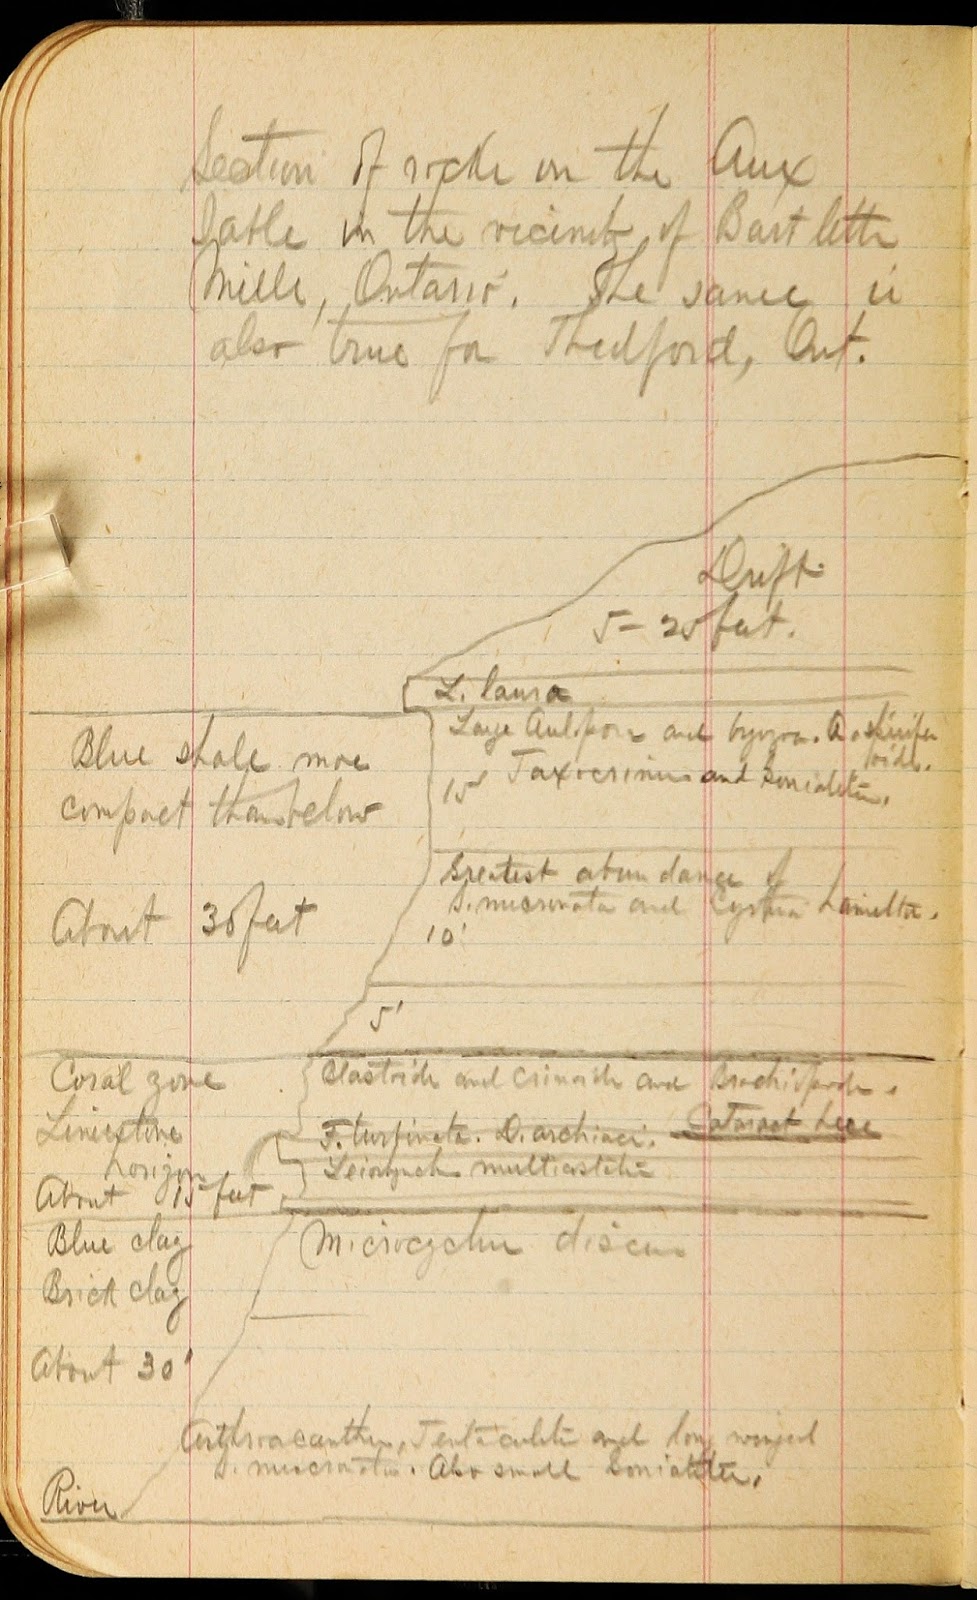 Section of rocks on the Aux
Sable in the vicinity of Bartletts
Mills, Ontario. The same is
also true for Thedford, Ont.
Drift
5-25 feet.
L. laura
Large Aulopora and bryozoa. A
Taxocrinus and Goniatites.
15'
Blue shale more
compact than below
About 30 feet
Greatest abundance of
S. mucronata and Cyrtina hamilto.
10'
5'
Coral zone
Limestone
horizon
About 15 feet
Blastoids and Crinoids and Brachiopods.
F. turbinata. D. archiaci.
Leiorynch multicosta
Blue clay
Brick clay
About 30'
Microcyclus discus
Arthroacantha, Tentaculites and long winged
S. mucronatus. Also small Goniatites.
River